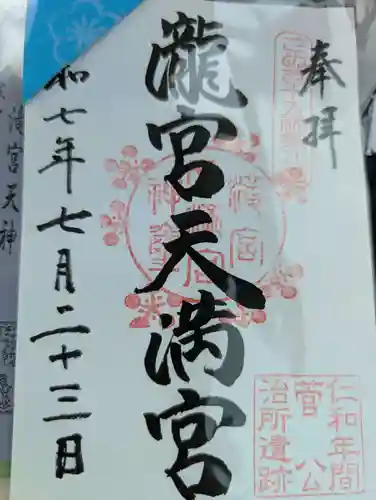 奉拝
瀧宮天満宮
和七年七月二十三日
仁和年間
菅公
治所遺跡
滝宮天神